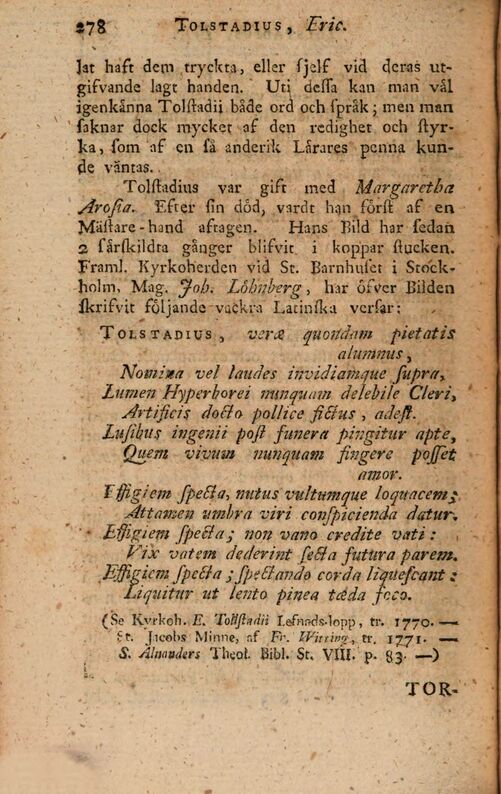 278 TOLSTADIUS, Eric.
lat haft dem tryckta, eller ſjelf vid deras ut-
gifvande lagt handen. Uti deſſa kan man väl
igenkånna Tolſtadii både ord och ſpråk; men man
ſaknar dock mycket af den redighet och ſtyr-
ka, ſom af en få anderik Lårares penna kun-
de våntas.
Tolſtadius var gift med Margaretha
Aroſia. Efter ſin död, vardt han förſt af en
Måſtare-hand aftagen. Hans Bild har ſedan
2 ſårſkildta gånger blifvit i koppar ſtucken.
Framl. Kyrkoherden vid St. Barnhuſet i Stock-
holm, Mag. Joh. Löhnberg, har öfver Bilden
ſkrifvit följande vackra Latinſka verſar:
TOLSTADIUS, veræ quondam pietatis
alumnus,
Nomina vel laudes invidiamque ſupra,
Lumen Hyperborei nunquam delebile Cleri,
Artificis docto pollice fictus, adeſt.
Luſibus ingenii poſt funera pingitur apte,
Quem vivum nunquam fingere poſſet
amor.
Effigiem ſpecta, nutus vultumque loquacem;
Attamen umbra viri conſpicienda datur.
Effigiem ſpecta; non vano credite vati:
Vix vatem dederint ſecla futura parem.
Effigiem ſpecta; ſpectando corda liqueſcant:
Liquitur ut lento pinea tæda foco.
(Se Kyrkoh. E. Tolſtadii Lefnads-lopp, tr. 1770. —
St. Jacobs Minne, af Fr. Wittring, tr. 1771. —
S. Alnanders Theol. Bibl. St. VIII. p. 83. —)
TOR-